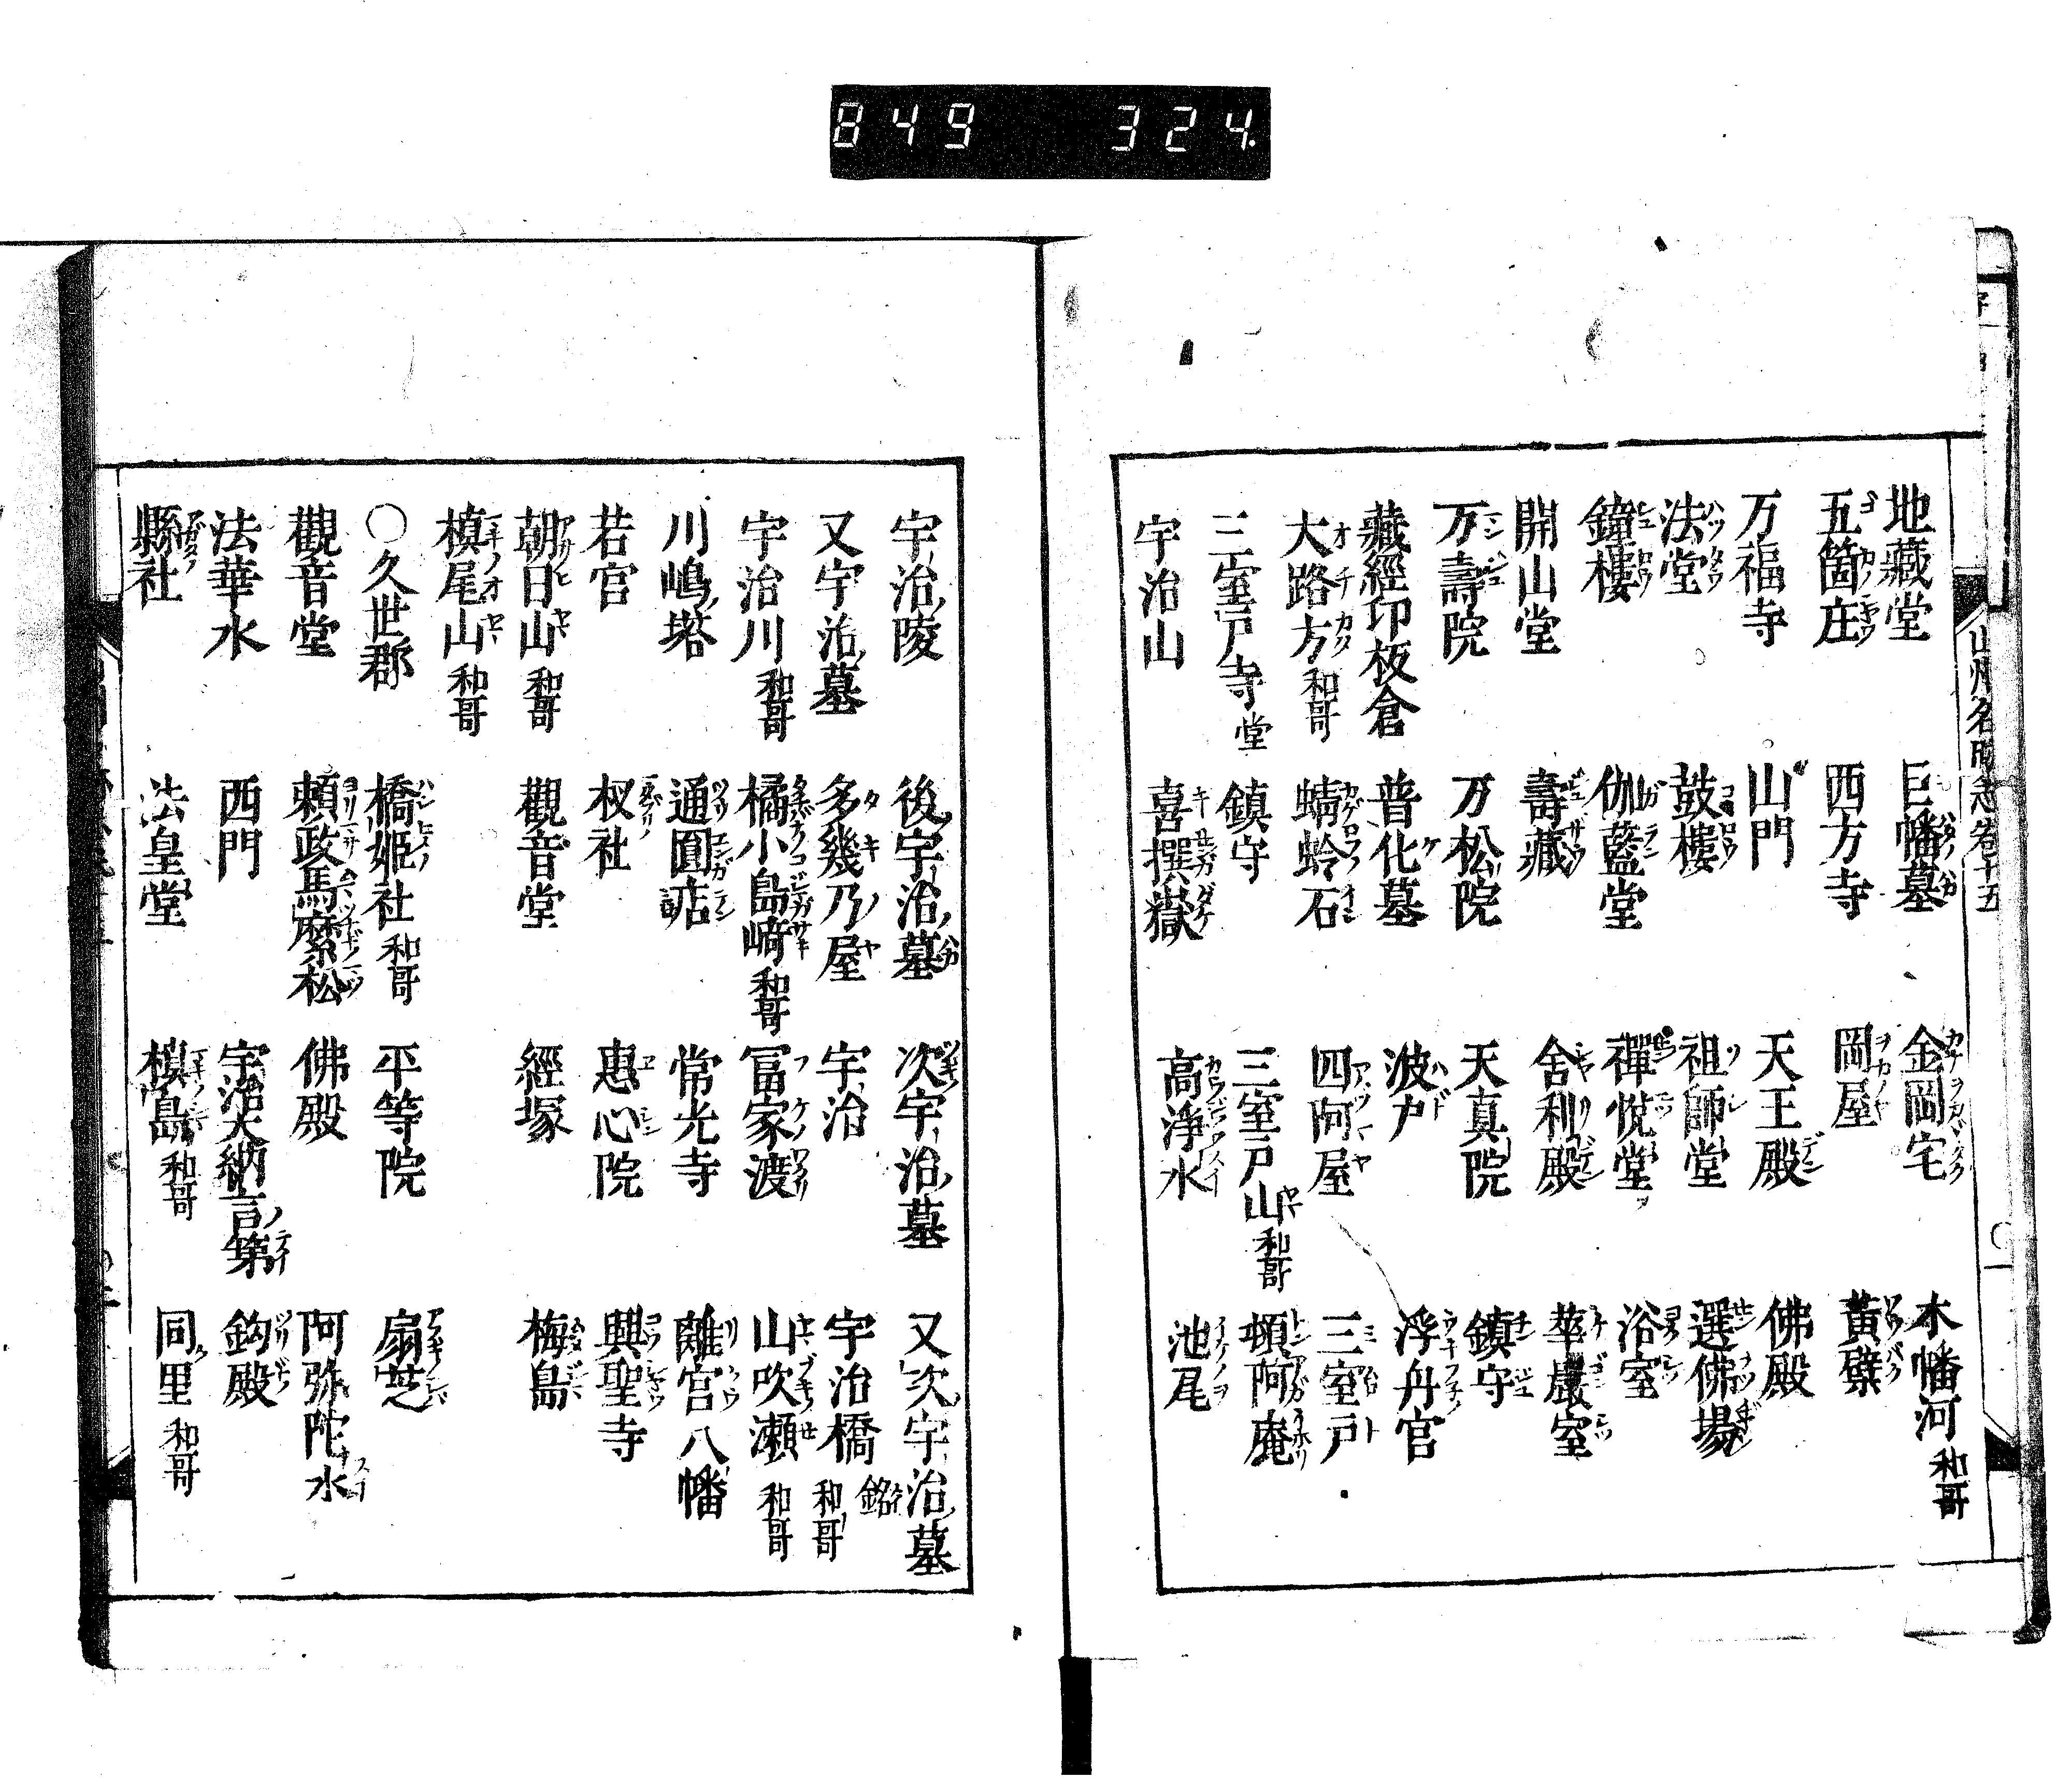 849 324
山州名勝志卷十五
地藏堂 巨幡墓 金岡宅 木幡河 和哥
五箇庄 西方寺 岡屋 黃檗
万福寺 山門 天王殿 佛殿
法堂 鼓樓 祖師堂 選佛場
鐘樓 伽藍堂 禪悅堂 浴室
開山堂 壽藏 舍利殿 華嚴室
万壽院 万松院 天真院 鎮守
藏經印板倉 普化墓 波戶 浮舟宮
大路方 和哥 蜻蛉石 四阿屋 三室戸
三室戸寺 堂 鎮守 三室戸山 和哥 頓阿庵
宇治山 喜撰嶽 高浄水 池尾
宇治陵 後宇治墓 次宇治墓 又次宇治墓
又宇治墓 多幾乃屋 宇治 宇治橋 銘 和哥
宇治川 和哥 橘小島﨑 和哥 冨家渡 山吹瀬 和哥
川嶋塔 通圓店 常光寺 離宮八幡
若宮 杈社 惠心院 興聖寺
朝日山 和哥 觀音堂 經塚 梅島
槙尾山 和哥
○久世郡 橋姫社 和哥 平等院 扇芝
觀音堂 頼政馬繋松 佛殿 阿弥陀水
法華水 西門 宇治大納言第 釣殿
縣社 法皇堂 槙島 和哥 同里 和哥